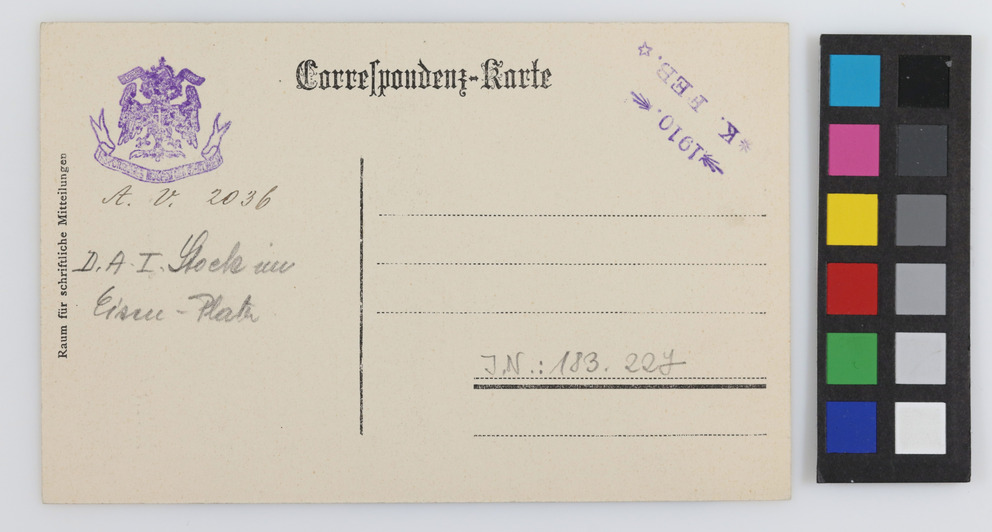 Correspondenz-Karte
☆ K. FEB. 1910.
A. V. 2036
D. A. I. Stock im
Eisen-Platz
Raum für schriftliche Mitteilungen
I.N.: 183.227